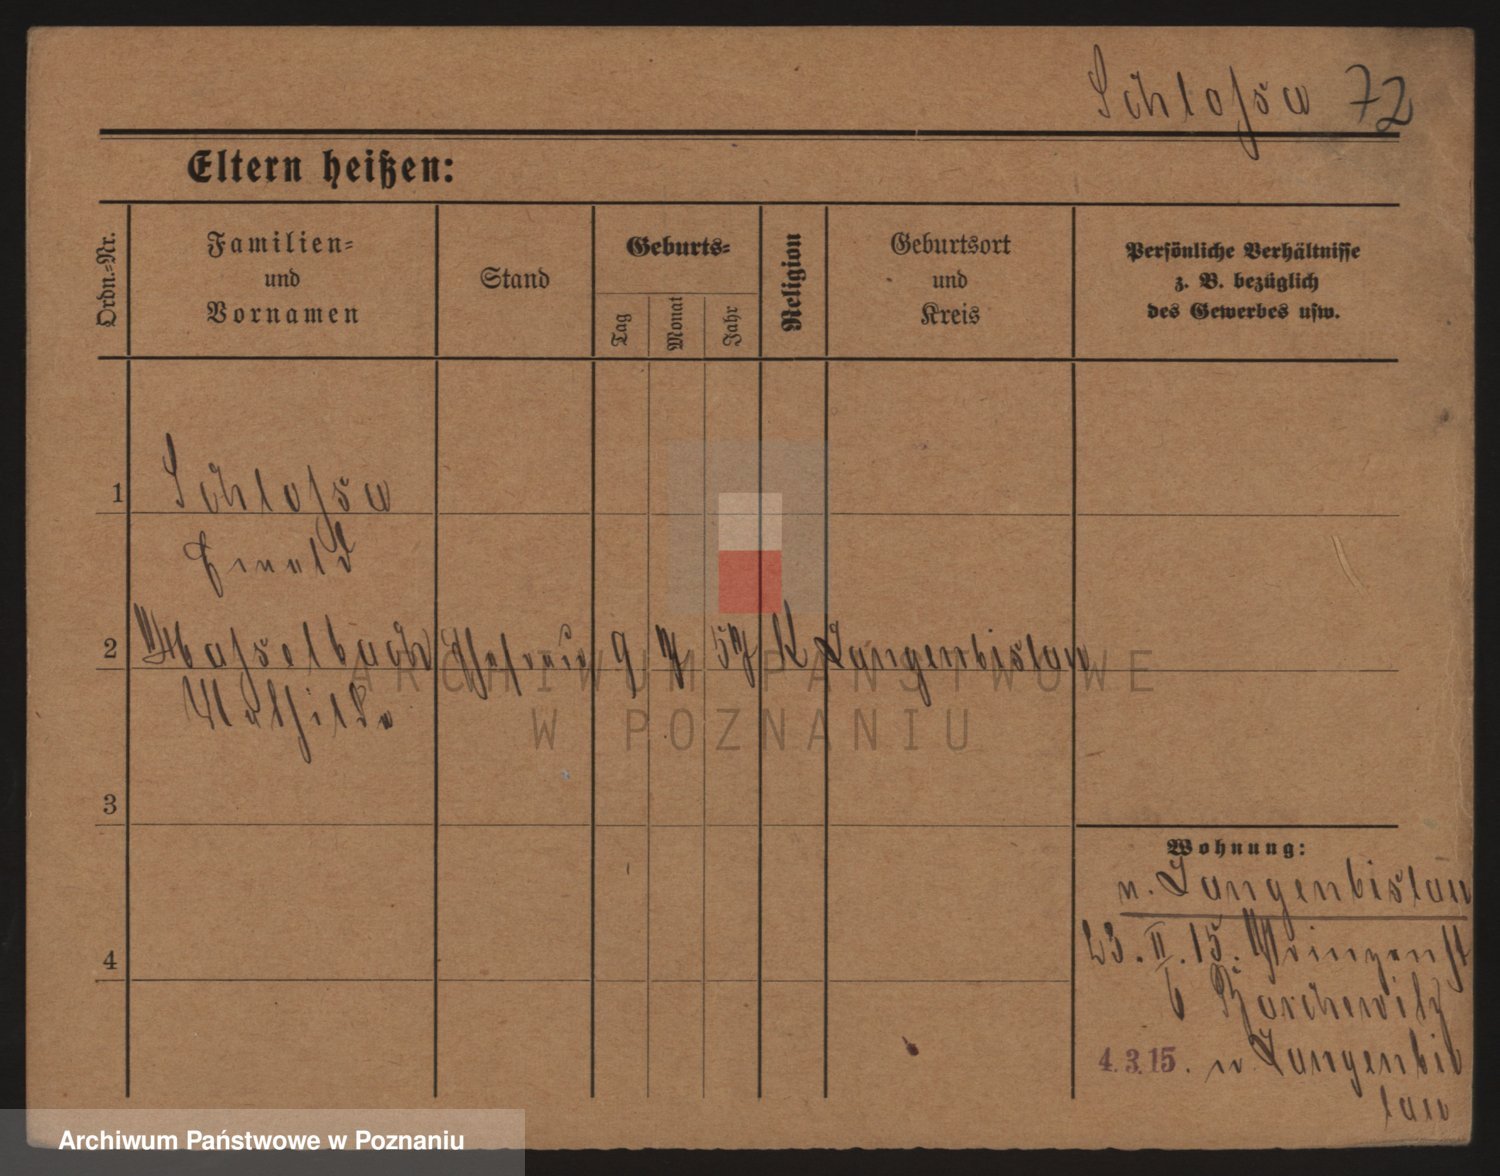 Schlosser 72
Eltern heißen:
Ordn.=Nr.
Familien=
und
Vornamen
Stand
Geburts=
Tag
Monat
Jahr
Religion
Geburtsort
und
Kreis
Persönliche Verhältnisse
z. B. bezüglich
des Gewerbes usw.
1
Schlosser
Ewald
2
Hasselbach Ehefrau 9 7 57 K Langenbielau
Mathilde
3
4
Wohnung:
n. Langenbielau
23. II. 15. Prinzenst
6
4. 3. 15. n Langenbie
lau
ARCHIWUM PAŃSTWOWE
W POZNANIU
Archiwum Państwowe w Poznaniu